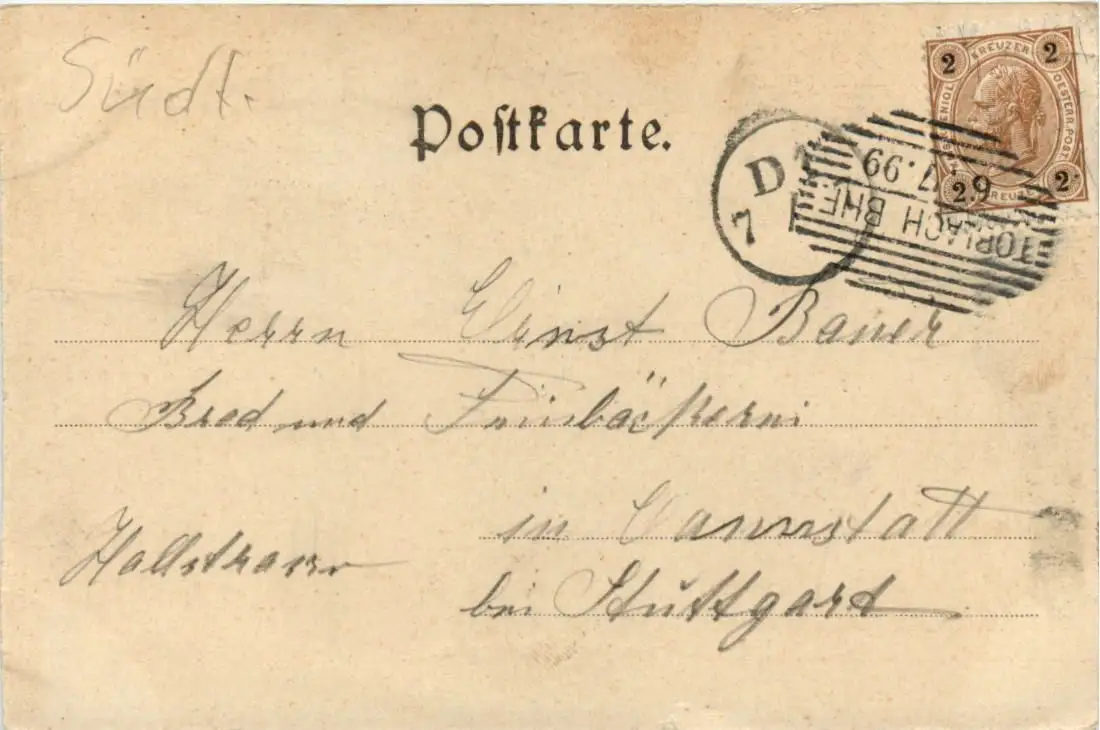 Südt.
Postkarte.
2 KREUZER 2
OESTERR. POST.
2 KREUZER 2
D
7 1
6 7.99
TOBLACH BHF.
Herrn Ernst Bauer
Brod und Feinbäckerei
in Cannstatt
Hallstrasse
bei Stuttgart